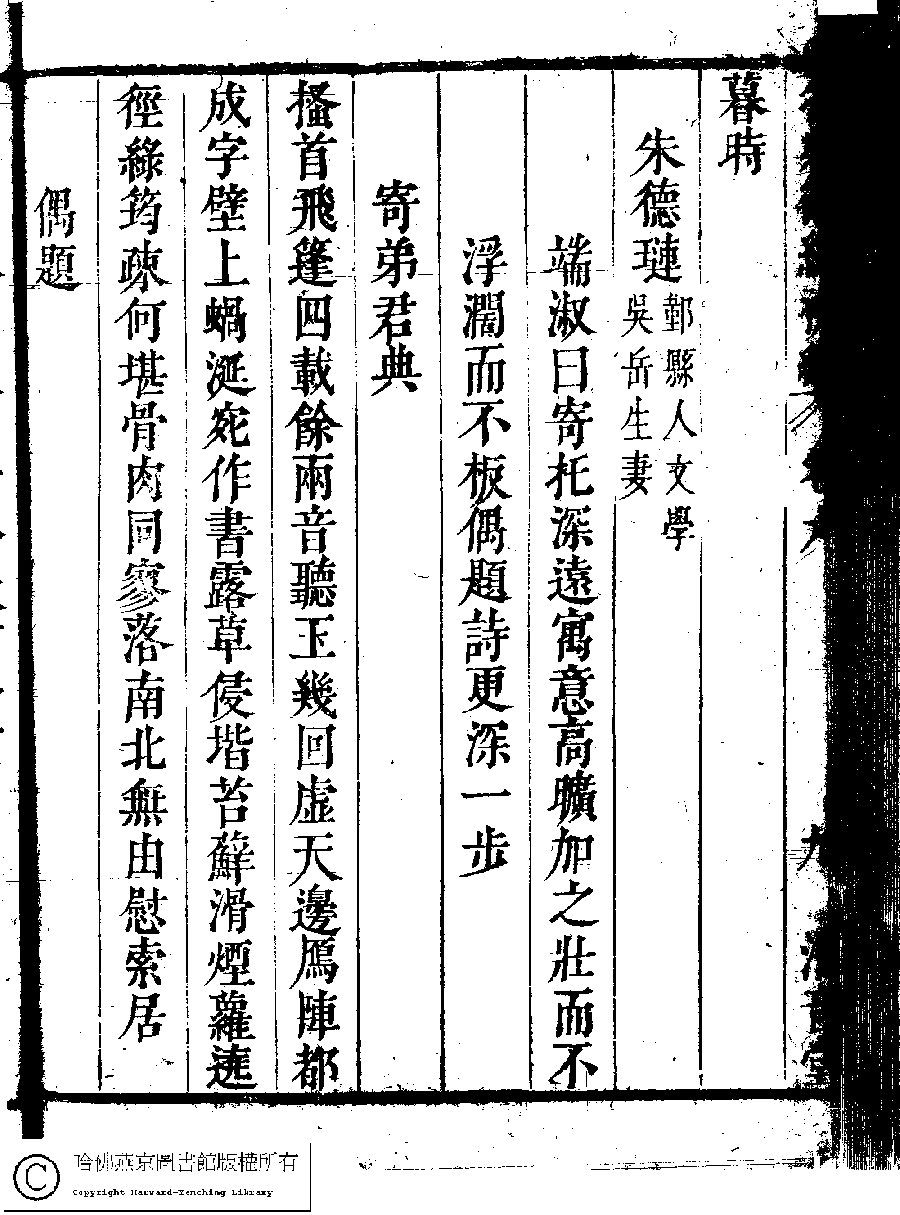 暮時
朱德璉
鄞縣人文學
吳岳生妻
端淑曰寄托深遠寓意高曠加之壯而不
浮濶而不板偶題詩更深一步
寄弟君典
搔首飛篷四載餘兩音聽玉幾回虛天邊鴈陣都
成字壁上蝸涎宛作書露草侵堦苔蘚滑煙蘿遮
徑綠筠疎何堪骨肉同寥落南北無由慰索居
偶題
哈佛燕京圖書館版權所有
Copyright Harvard-Yenching Library